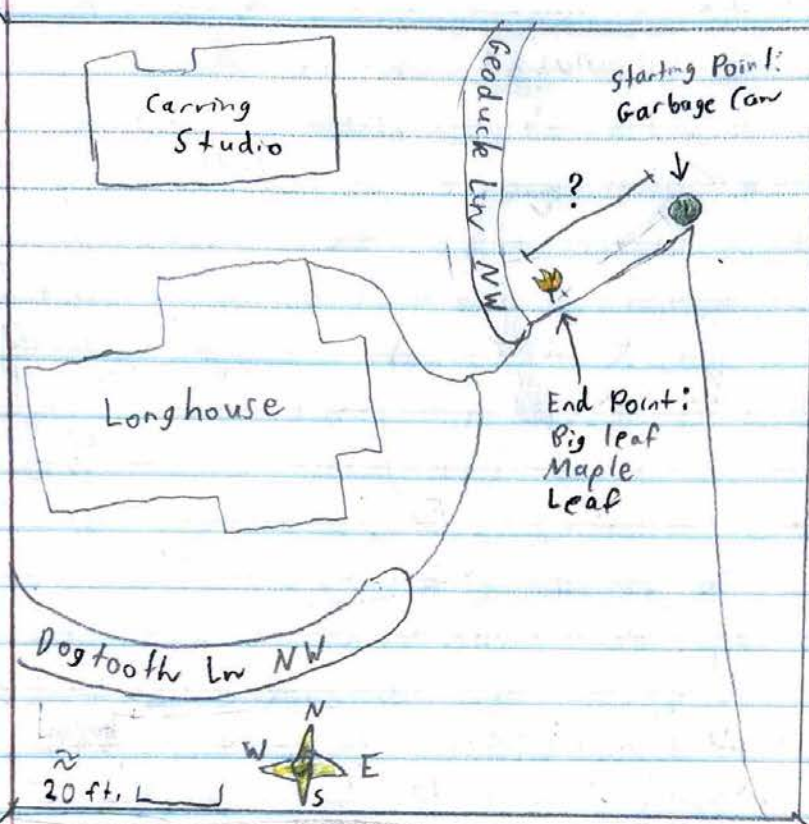 Carving
Studio
Geoduck Ln NW
Starting Point:
Garbage Can
?
Longhouse
End Point:
Big leaf
Maple
Leaf
Dogtooth Ln NW
N
W
E
S
≈
20 ft.